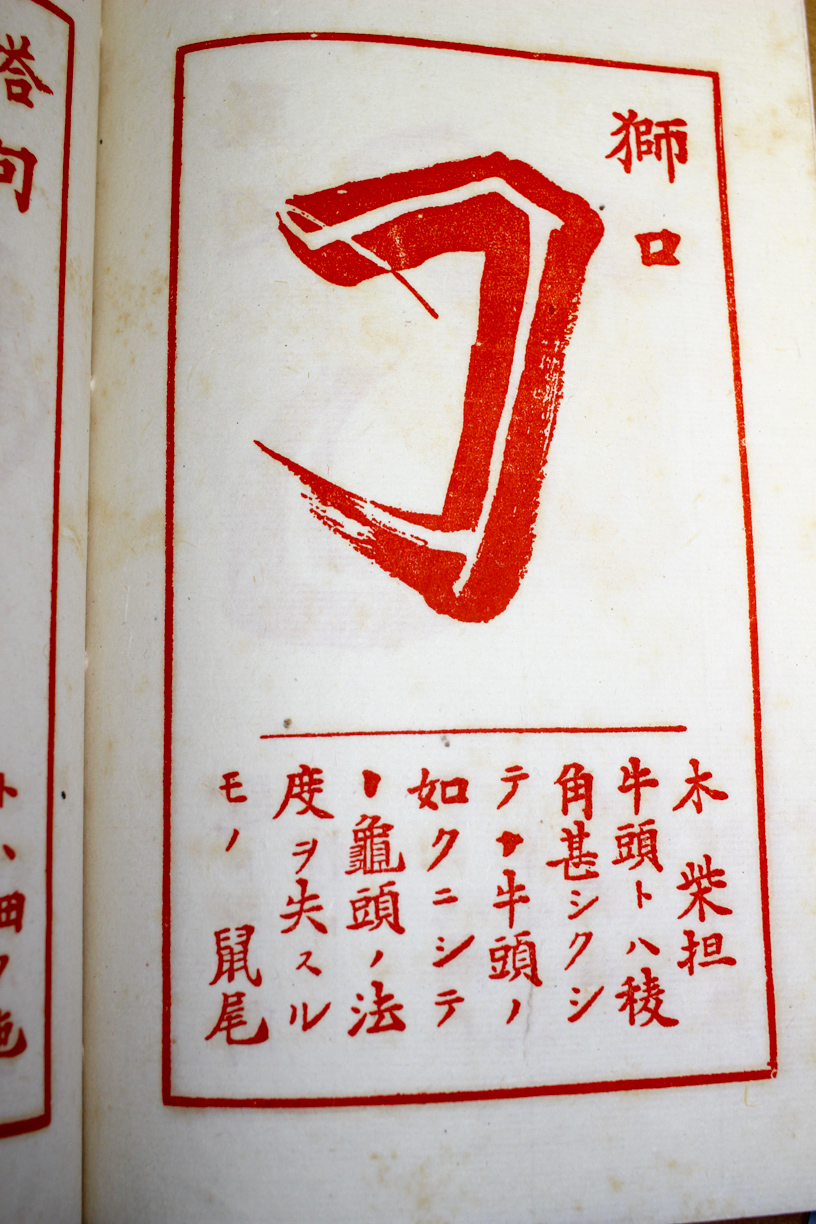 獅口
木 柴担
牛頭トハ稜
角甚シクシ
テ牛頭ノ
如クニシテ
龜頭ノ法
度ヲ失スル
モノ 鼠尾
答句